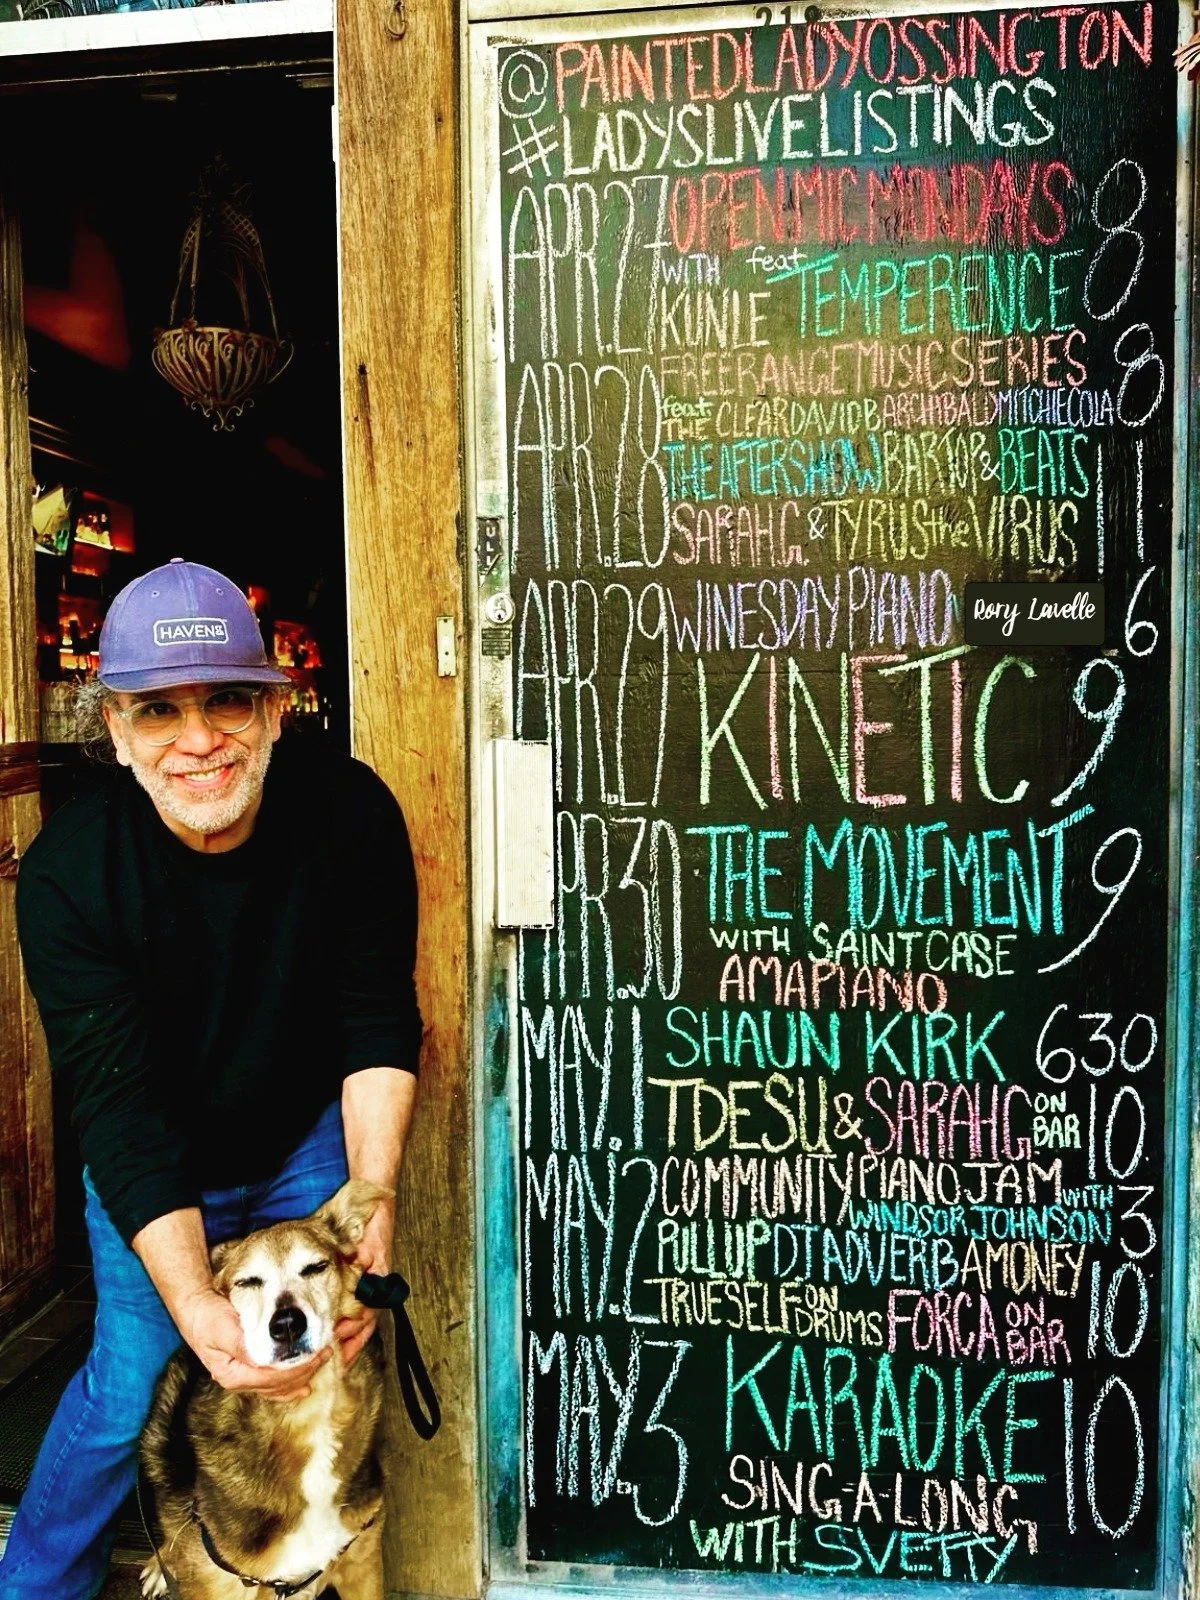 218
@PAINTEDLADYOSSINGTON
#LADYSLIVELISTINGS
APR.27 OPEN MIC MONDAYS 8
WITH KUNLE feat TEMPERENCE
APR.28 FREERANGEMUSICSERIES 8
feat. THE CLEARDAVIDB ARCHIBALD MITCHIECOLA
THEAFTERSHOW BARTOP & BEATS 11
SARAHG. & TYRUS the VIRUS
APR.29 WINESDAY PIANO Rory Lavelle 6
KINETIC 9
APR.30 THE MOVEMENT 9
WITH SAINTCASE
AMAPIANO
MAY.1 SHAUN KIRK 630
TDESU & SARAHG. ON BAR 10
MAY.2 COMMUNITY PIANO JAM WITH 3
WINDSOR JOHNSON
PULLUP DJADVERB AMONEY 10
TRUESELF ON DRUMS FORCA ON BAR
MAY.3 KARAOKE 10
SING-A-LONG
WITH SVETTY
HAVEN